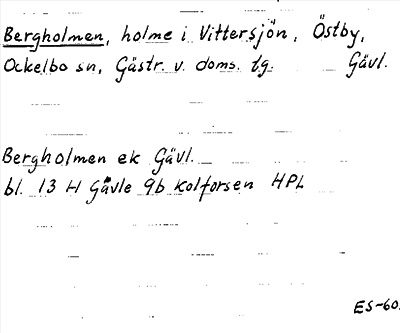 Bergholmen, holme i Vittersjön, Östby,
Ockelbo sn, Gästr. v. doms. tg. Gävl.
Bergholmen ek Gävl.
bl. 13 H Gävle 9b Kolforsen HPL
ES-60.